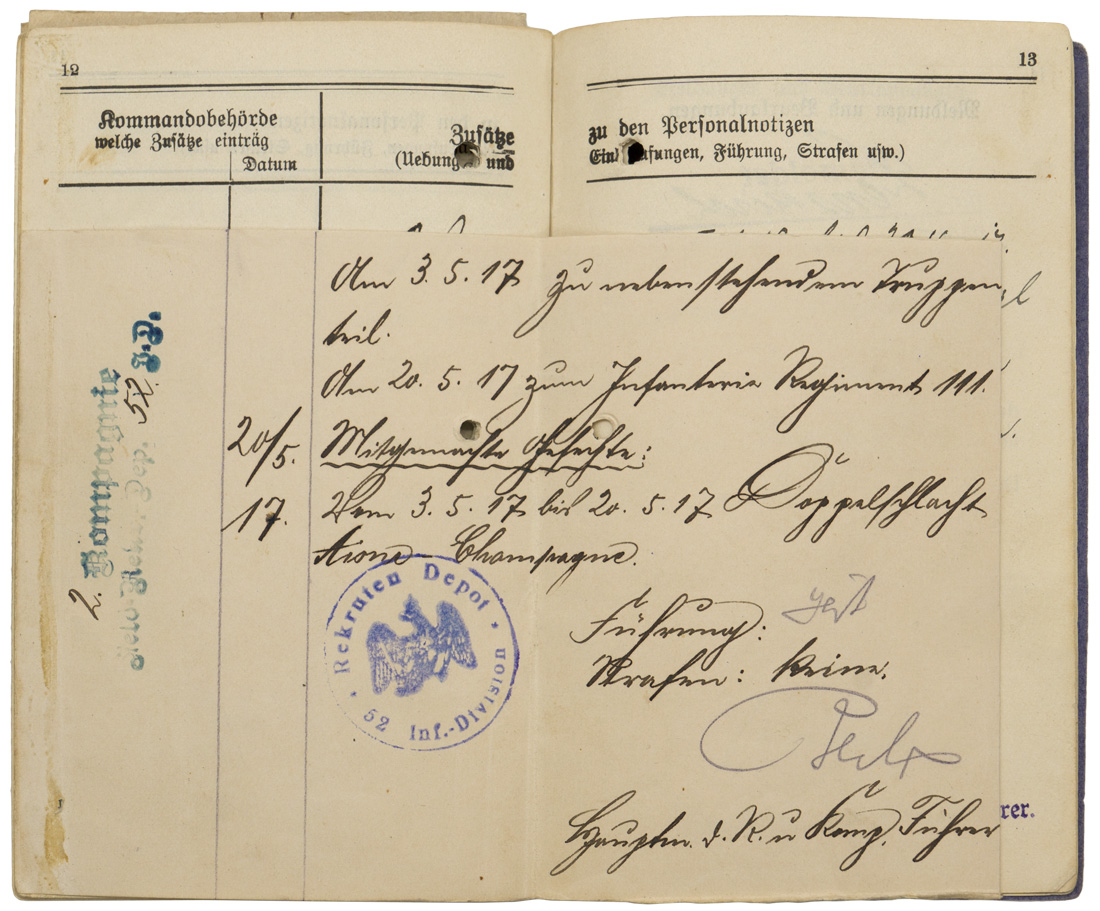 12
Kommandobehörde
welche Zusätze einträg
Datum
Zusätze
(Uebung und
13
zu den Personalnotizen
Ein ufungen, Führung, Strafen usw.)
Am 3. 5. 17 zu nebenstehendem Truppen
teil.
Am 20. 5. 17 zum Infanterie Regiment 111.
20/5.
17.
Mitgemachte Gefechte:
Vom 3. 5. 17 bis 20. 5. 17 Doppelschlacht
Aisne - Champagne.
2. Kompagnie
Feld-Rekr. Dep. 52. I.D.
Rekruten Depot
52 Inf.-Division
Führung: gut
Strafen: keine.
Hauptm. d. R. u Komp. Führer
rer.